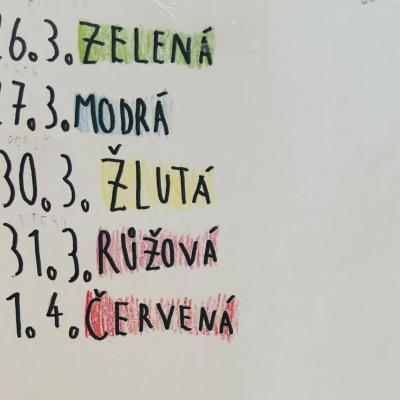 26.3. ZELENÁ
27.3. MODRÁ
30.3. ŽLUTÁ
31.3. RŮŽOVÁ
1.4. ČERVENÁ